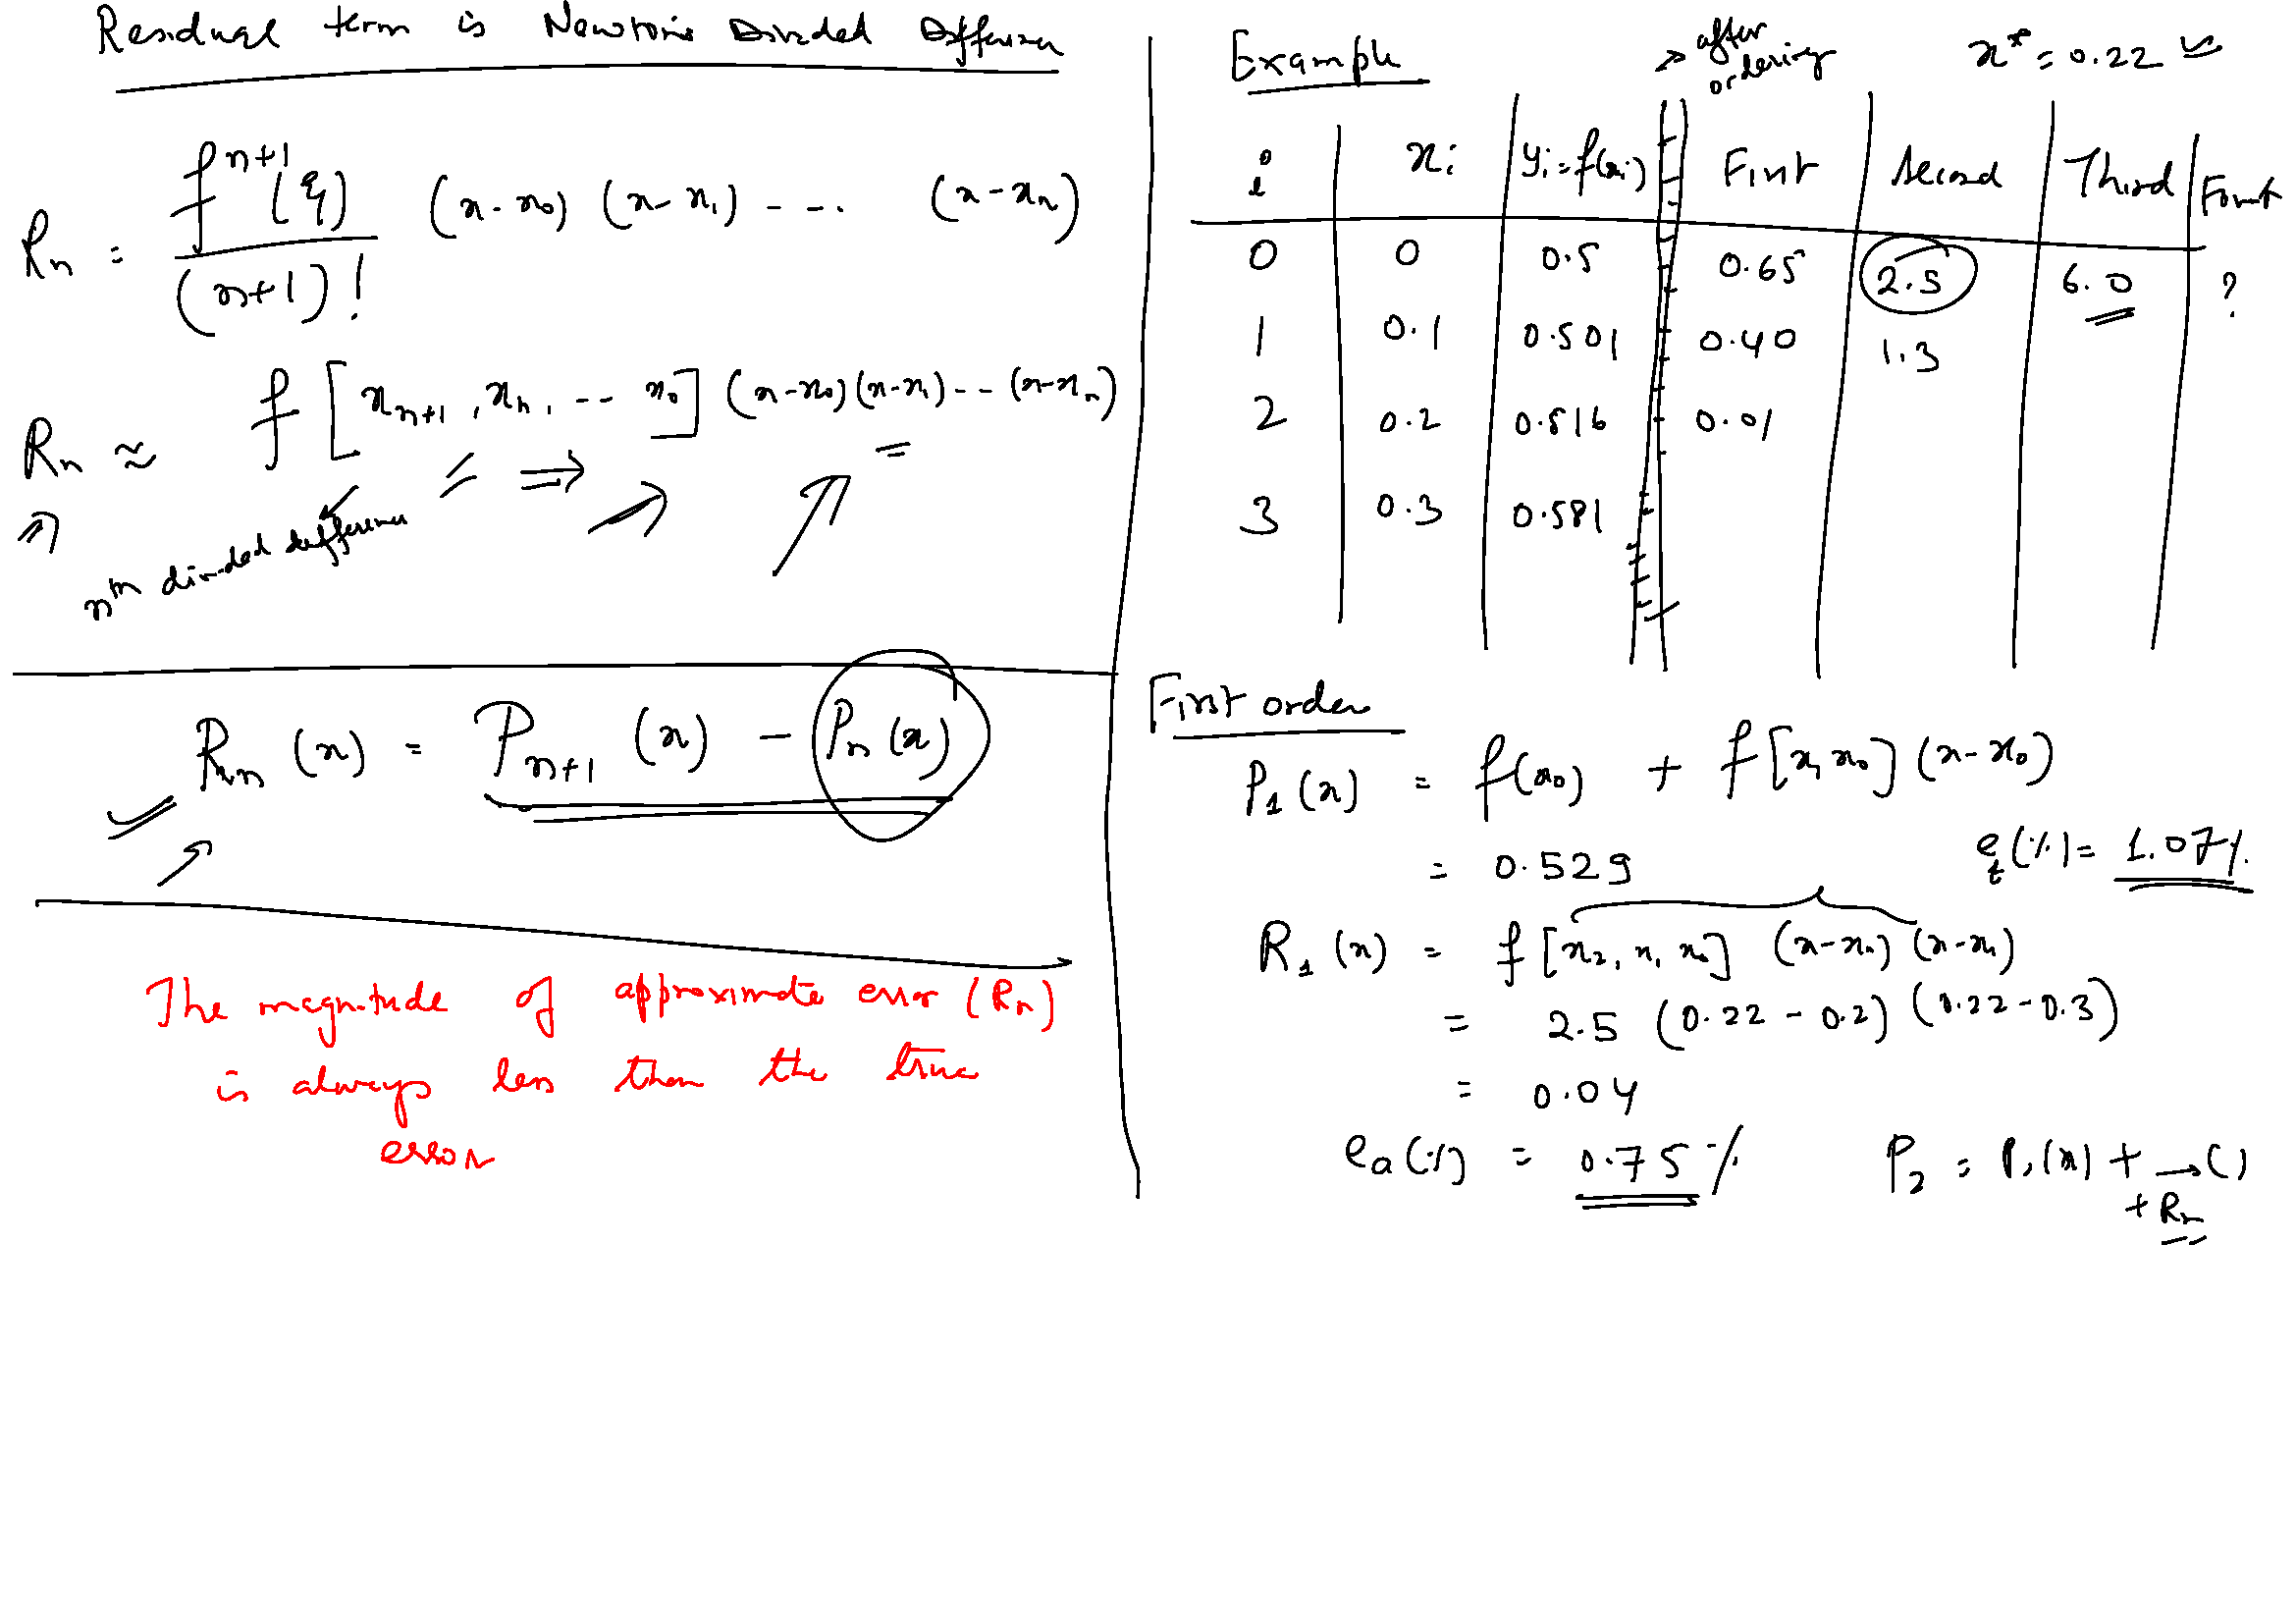 Residual term is Newton's Divided Difference
Rn = f^{n+1}(ξ) / (n+1)! (x-x0) (x-x1) - - - . (x-xn)
Rn ≈ f [xn+1, xn, -- x0] (x-x0)(x-x1)-- (x-xn)
nth divided difference
Rn (x) = Pn+1 (x) - Pn (x)
The magnitude of approximate error (Rn)
is always less than the true
error
Example
after
ordering
x* = 0.22
i xi yi = f(xi) First Second Third Fourt
0 0 0.5 0.65 2.5 6.0 ?
1 0.1 0.501 0.40 1.3
2 0.2 0.516 0.01
3 0.3 0.581
First order
P1 (x) = f(x0) + f[x1 x0] (x-x0)
= 0.529
et (%) = 1.07%
R1 (x) = f [x2, x1 x0] (x-x0) (x-x1)
= 2.5 (0.22 - 0.2) (0.22-0.3)
= 0.04
ea (%) = 0.75 %
P2 = P1(x) + →( )
+ Rn